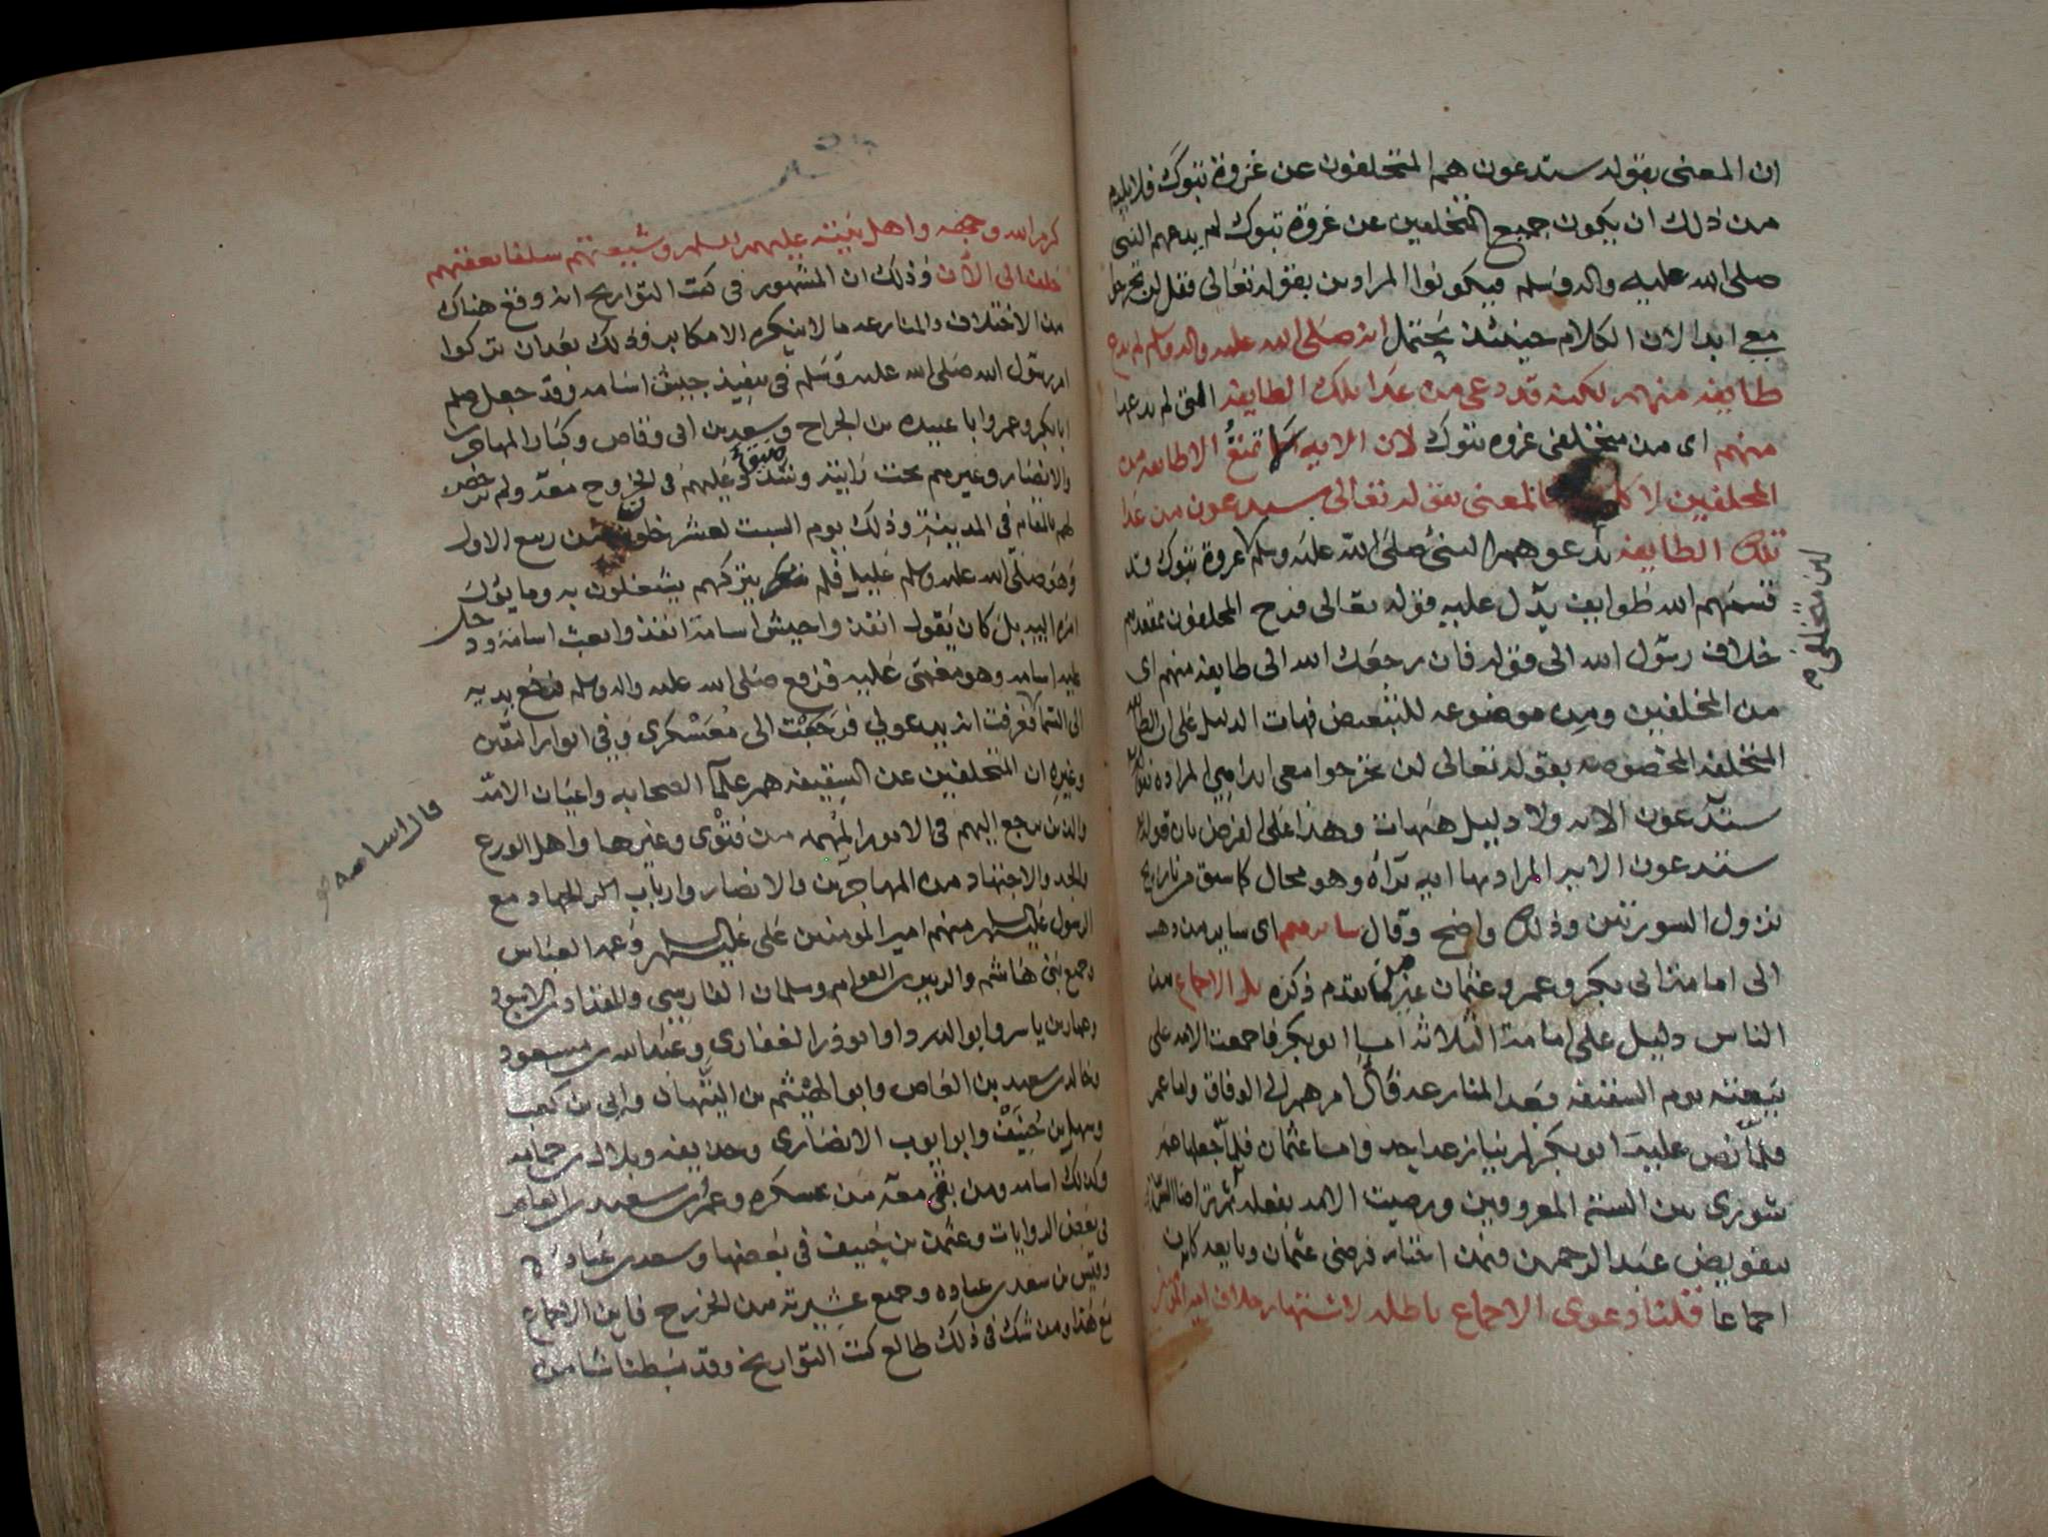 ان المعنى بقوله ستدعون هم المتخلفون عن غزوة تبوك فلا يلزم
من ذلك ان يكون جميع المتخلفين عن غزوة تبوك لم يدعهم النبي
صلى الله عليه واله وسلم فيكونوا المرادين بقوله تعالى فقل لن تخرجوا
معي ابدا لان الكلام حينئذ يحتمل انه صلى الله عليه واله وسلم لم يدع
طايفة منهم لكنه قد دعى من عدا تلك الطايفة التي لم يدعها
منهم اى من متخلفي غزوة تبوك لان الاية تمنع الا طايفة من
المخلفين لا فالمعنى بقوله تعالى ستدعون من عدا
تلك الطايفة يدعوهم النبي صلى الله عليه وسلم غزوة تبوك قد
قسمهم الله طوايف يدل عليه قوله تعالى فرح المخلفون بمقعدهم
خلاف رسول الله الى قوله فان رجعك الله الى طايفة منهم اى
من المخلفين ومن موضوعه للتبعيض فهات الدليل على ان الطايفة
المتخلفة المخصوصة بقوله تعالى لن تخرجوا معي ابدا هي المرادة بقوله
ستدعون الاية ولا دليل هيهات وهذا على الفرض بان قوله
ستدعون الاية المراد بها اية براة وهو محال كما سبق من تاريخ
نزول السورتين وذلك واضح وقال سايرهم اى ساير من ذهب
الى امامة ابي بكر وعمر وعثمان غير من تقدم ذكره بل الاجماع من
الناس دليل على امامة الثلاثة اما ابو بكر فاجمعت الامة على
بيعته يوم السقيفة وبعد المنازعة قال امرهم الى الوفاق واما عمر
فلما نص عليه ابو بكر لم ينازعه احد واما عثمان فلما جعلها عمر
شورى بين الستة المعروفين ورضيت الامة بفعله ثم تراضا الستة
بتفويض عبد الرحمن فيمن اختاره فرضي عثمان وبايعه كان
اجماعا قلنا دعوى الاجماع باطلة لاشتهار خلاف امير المؤمنين
لن متخلفي
كرم الله وجهه واهل بيته عليهم السلم وشيعتهم سلفا يعقبهم
خلف الى الآن وذلك ان المشهور في كتب التواريخ انه وقع هناك
من الاختلاف والمنازعة ما لا ينكره الا مكابر وذلك بعد ان تركوا
امر رسول الله صلى الله عليه وسلم في تنفيذ جيش اسامه وقد جعل صلعم
ابا بكر وعمر وابا عبيدة بن الجراح وسعد بن ابي وقاص وكبار المهاجرين
والانصار وغيرهم تحت رايته وشدد عليهم في الخروج معه ولم يرخص
لهم بالمقام في المدينة وذلك يوم السبت لعشر خلون من ربيع الاول
وهو صلى الله عليه وسلم عليل فلم يتركهم يشتغلون به وما يؤل
امره اليه بل كان يقول انفذوا جيش اسامة انفذوا بعث اسامة ودخل
عليه اسامه وهو مغمى عليه فرفع صلى الله عليه واله وسلم يديه
الى السما فعرفت انه يدعو لي فرجعت الى معسكري وفي انوار اليقين
وغيره ان المتخلفين عن السقيفة هم علمآ الصحابه واعيان الامة
والذين يرجع اليهم في الامور المهمه من فتوى وغيرها واهل الورع
والجد والاجتهاد من المهاجرين والانصار وارباب الجهاد مع
الرسول عليه السلم منهم امير المؤمنين علي عليه السلم وعمه العباس
وجميع بني هاشم والزبير بن العوام وسلمان الفارسي والمقداد بن الاسود
وعمار بن ياسر وابو الدردا وابو ذر الغفاري وعبدالله بن مسعود
وخالد بن سعيد بن العاص وابو الهيثم بن التيهان وابي بن كعب
وسهل بن حنيف وابو ايوب الانصاري وحذيفه وبلال بن حمامه
وكذلك اسامه ومن بقي معه من عسكره وعمرو بن سعيد بن العاص
في بعض الروايات وعثمن بن حنيف في بعضها وسعد بن عبادة
وقيس بن سعد بن عباده وجميع عشيرته من الخزرج فاين الاجماع
مع هذا ومن شك في ذلك طالع كتب التواريخ وقد بسطنا شيا من
قال اسامه